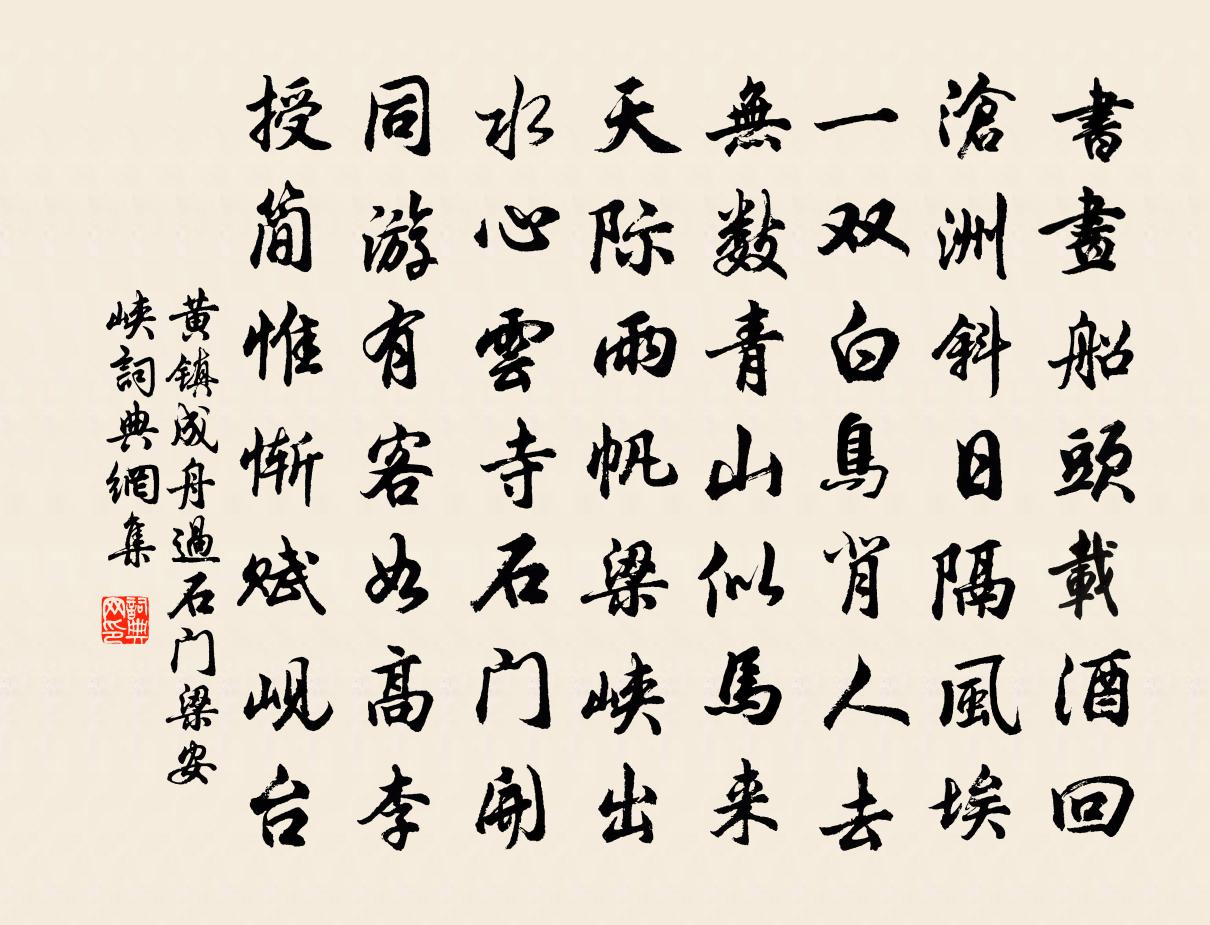 書畫船頭載酒回
滄洲斜日隔風埃
一双白鳥背人去
無数青山似馬来
天际雨帆梁峡出
水心雲寺石门開
同游有客如高李
授简惟惭赋岘台
黄镇成舟過石门梁安
峡詞典網集
詞典网印